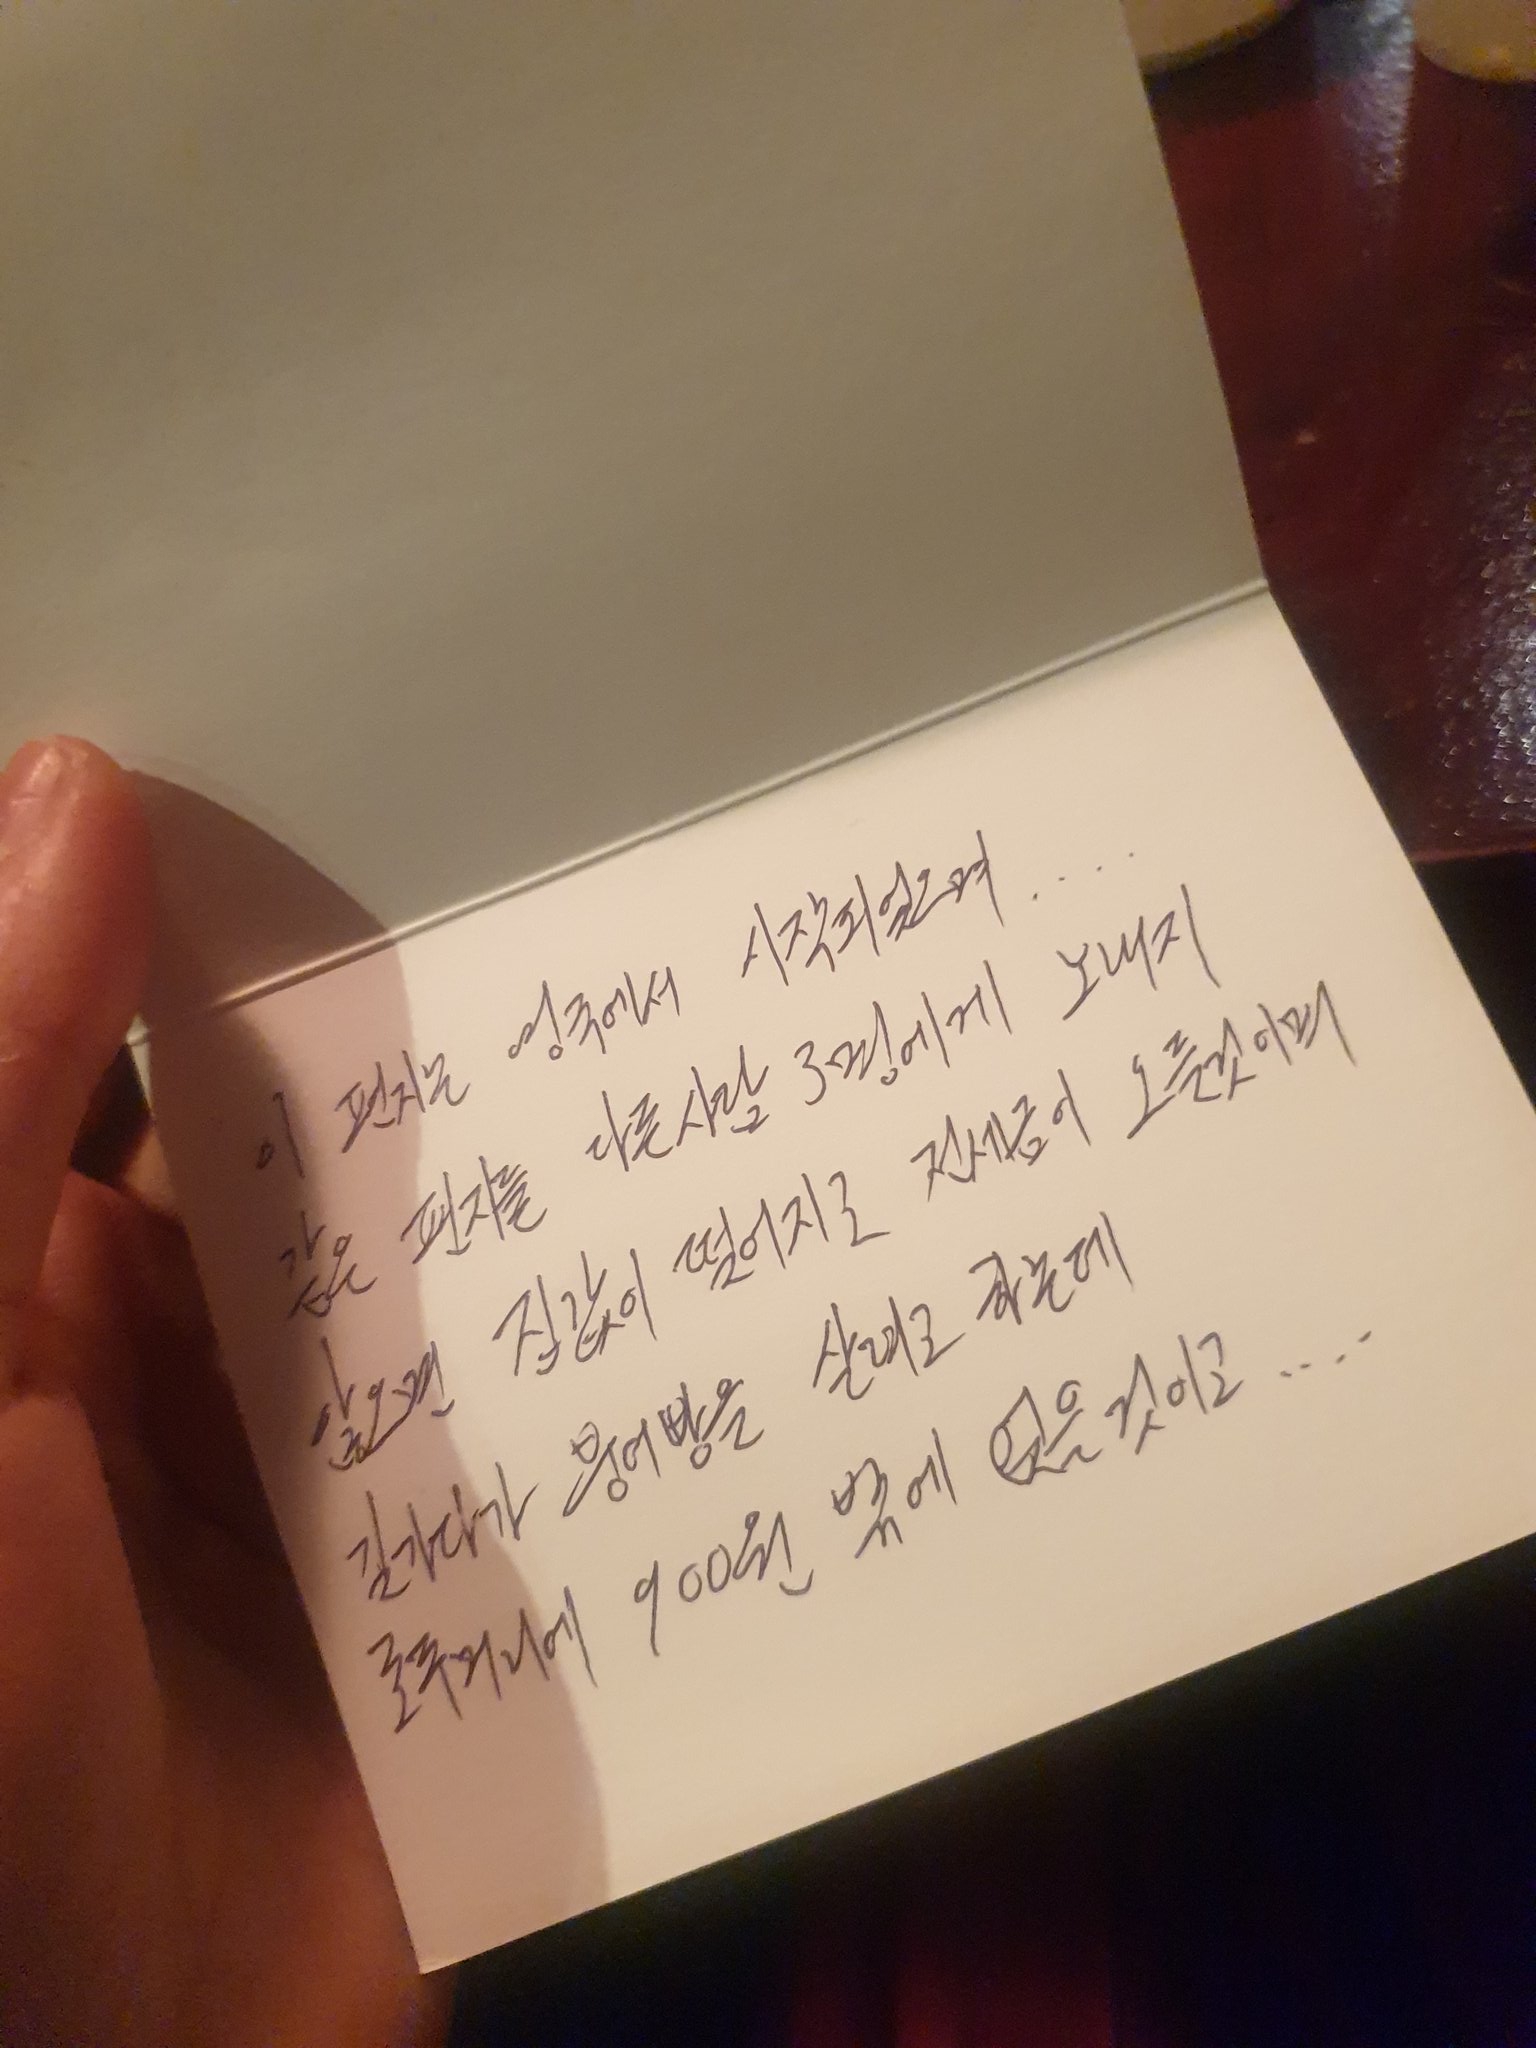 이 편지는 영국에서 시작되었으며 . . . .
같은 편지를 다른사람 3명에게 보내지
않으면 집값이 떨어지고 전세금이 오를것이며
길가다가 붕어빵을 살려고 하는데
호주머니에 900원 밖에 없을것이고 . . . . .